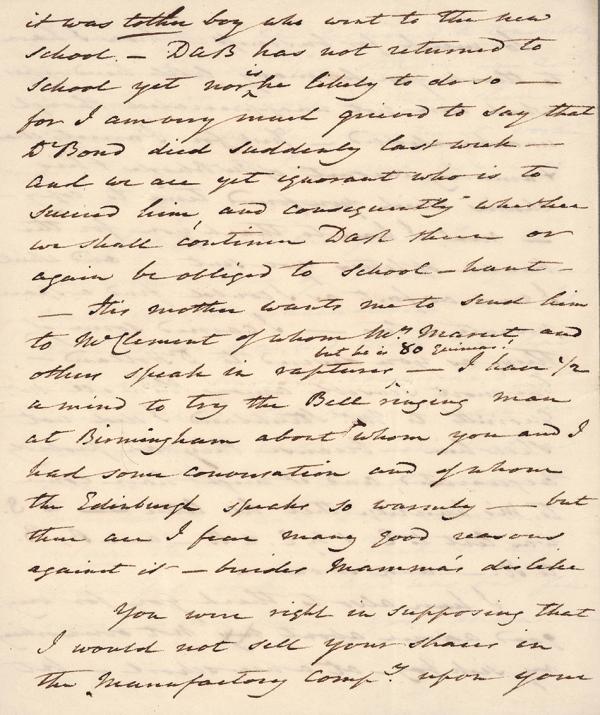 it was tother boy who went to the new
school. – DaR has not returned to
school yet nor is he likely to do so —
for I am very much grieved to say that
Dr Bond died suddenly last week —
and we are yet ignorant who is to
succeed him, and consequently whether
we shall continue DaR there or
again be obliged to school – hunt –
– His mother wants me to send him
to Mr Clement of whom Mrs Marcet and
but he is 80 Guineas!
others speak in raptures — I have 1/2
a mind to try the Bell ringing man
at Birmingham about whom you and I
had some conversation and of whom
the Edinburgh speaks so warmly — but
there are I fear many good reasons
against it – besides Mamma's dislike
You were right in supposing that
I would not sell your shares in
the Manufactory Compy. upon your